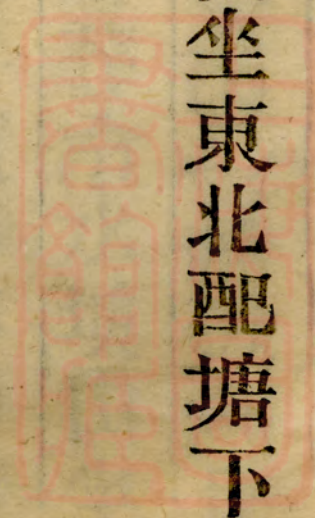 坐東北配塘下